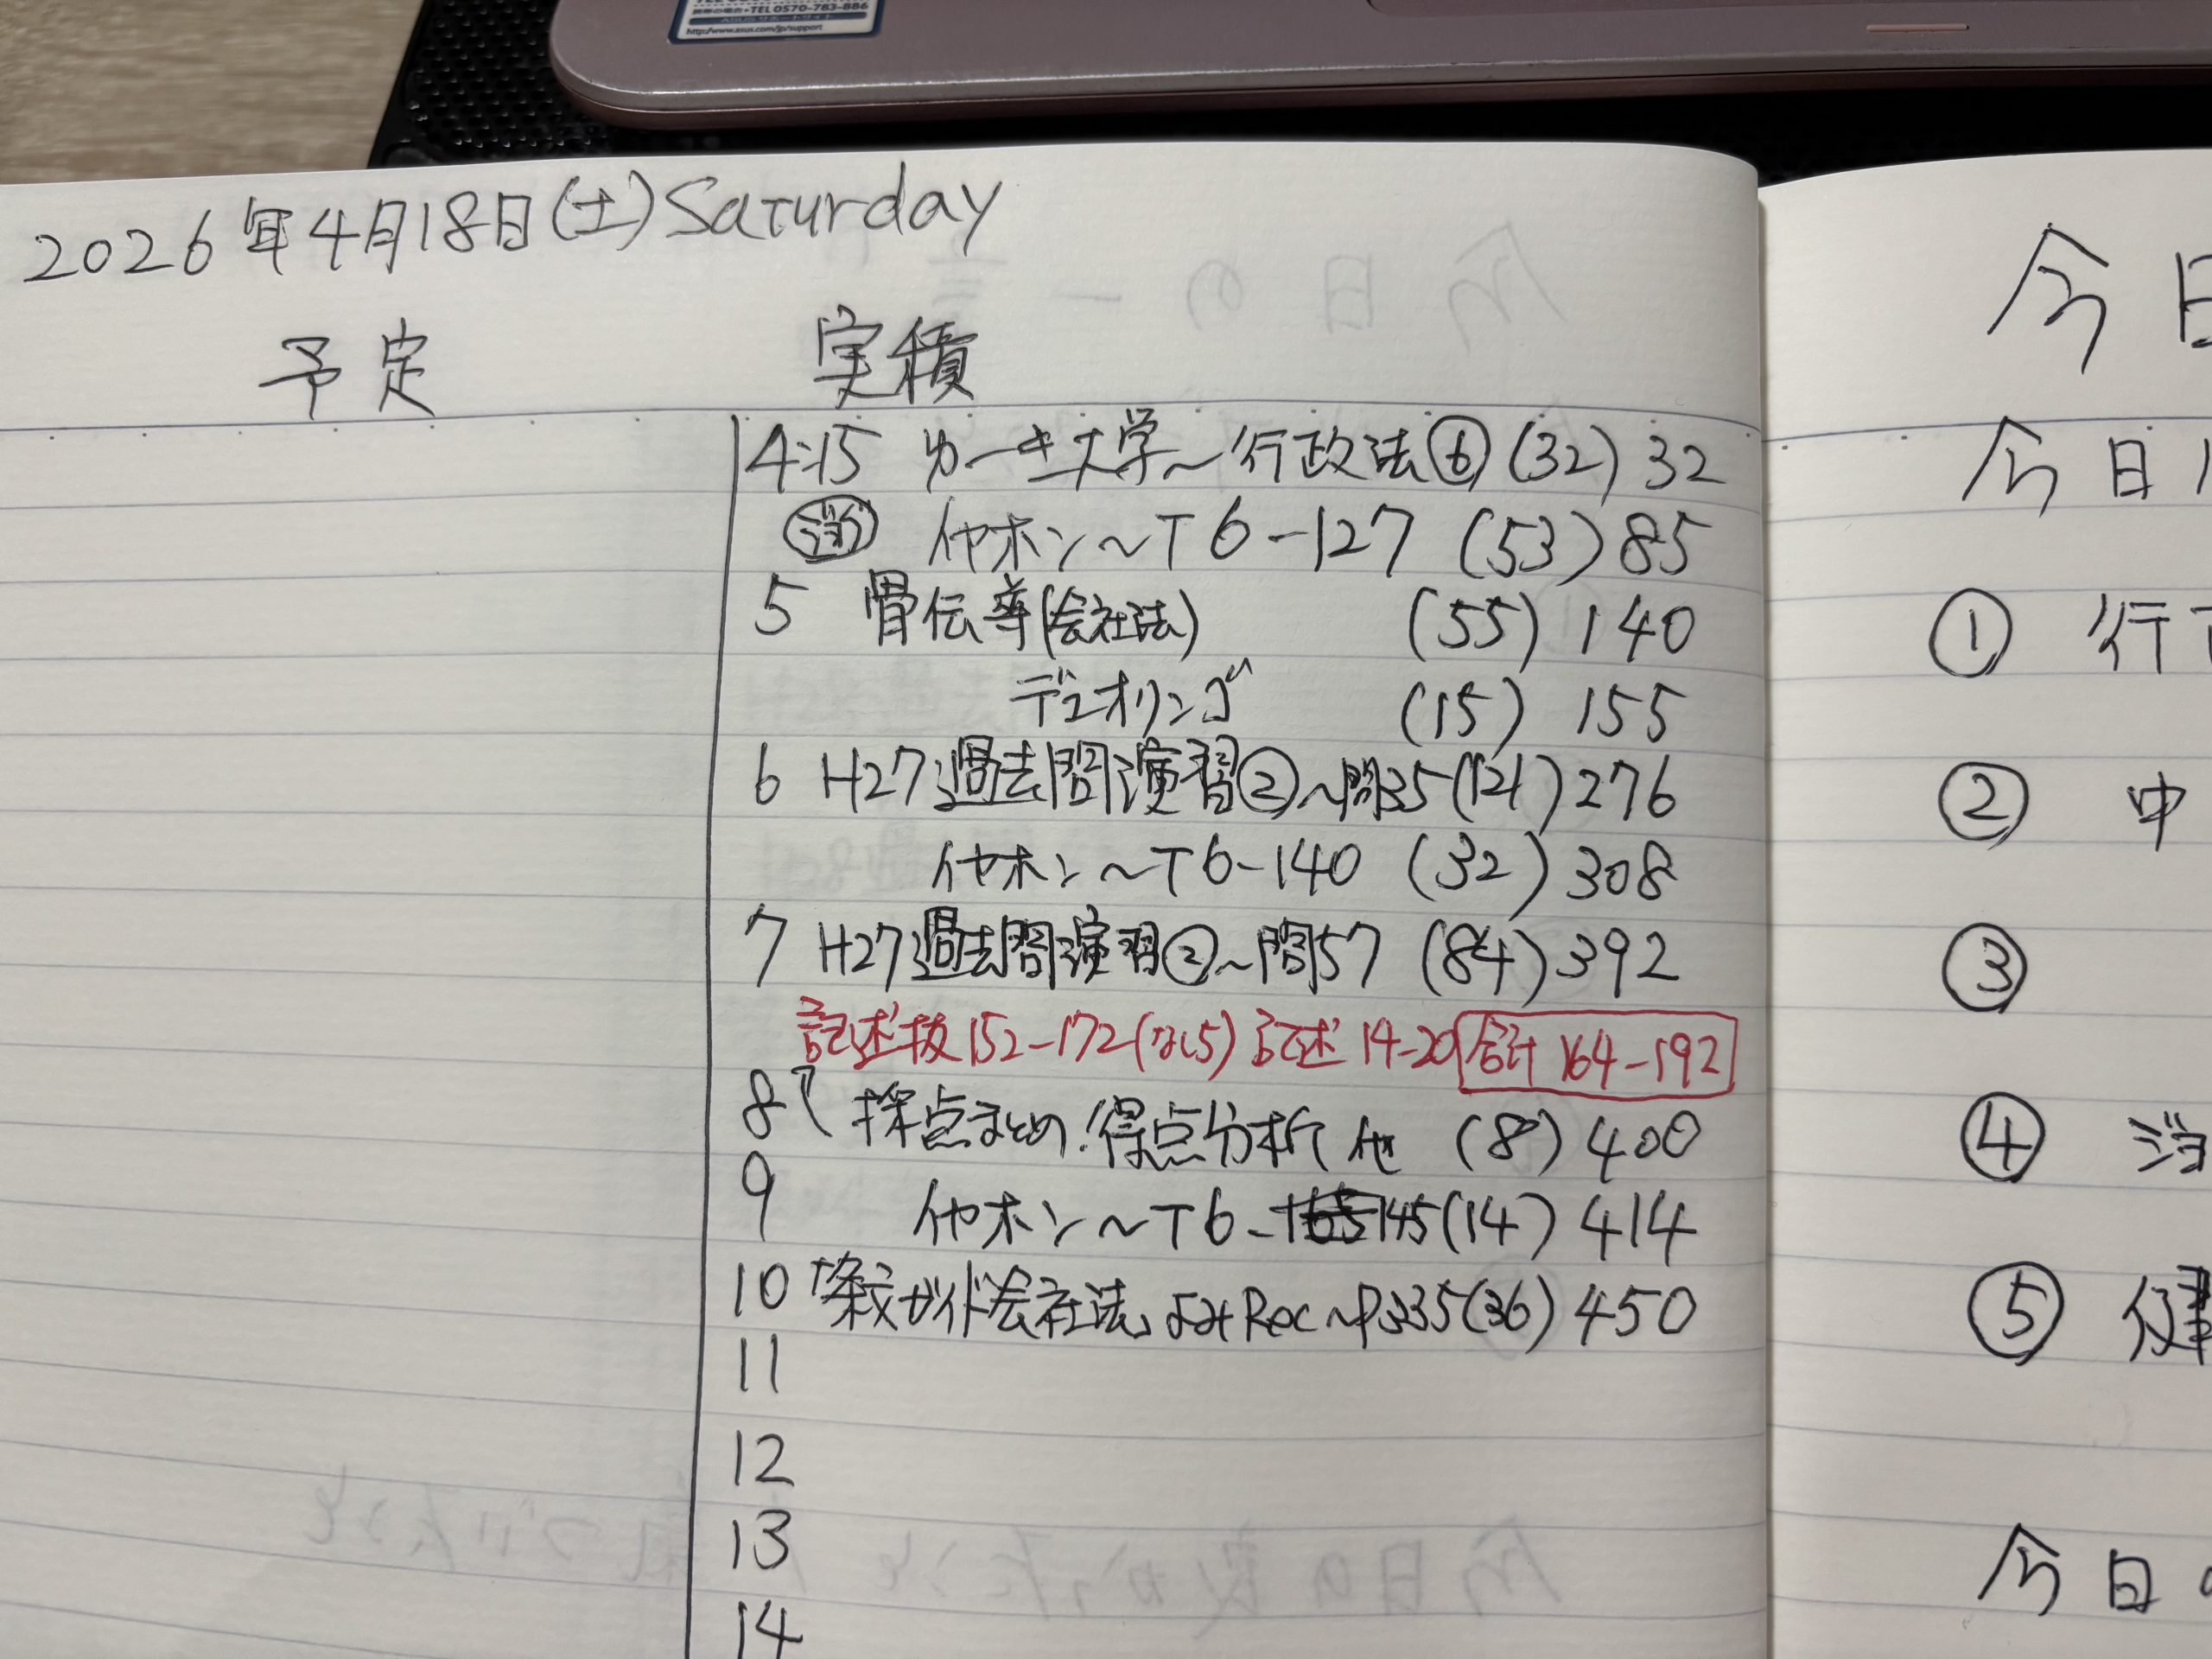 TEL 0570-783-886
ASUS サポートサイト
http://www.asus.com/jp/support
2026年4月18日(土)Saturday
予定
実積
4:15 ゆーき大学~行政法⑥(32) 32
イヤホン~T6-127 (53) 85
5 骨伝導(会社法) (55) 140
デュオリンゴ (15) 155
6 H27過去問演習②~問35(121) 276
イヤホン~T6-140 (32) 308
7 H27過去問演習②~問57 (84) 392
記述抜152-172(なし5) 記述14-20 合計 164-192
8 採点まとめ.得点分析 他 (8) 400
9 イヤホン~T6-145(14) 414
10 「条文ガイド会社法」よみRec~P335(36) 450
11
12
13
14
今日
今日
① 行
② 中
③
④ ジョ
⑤ 健
今日